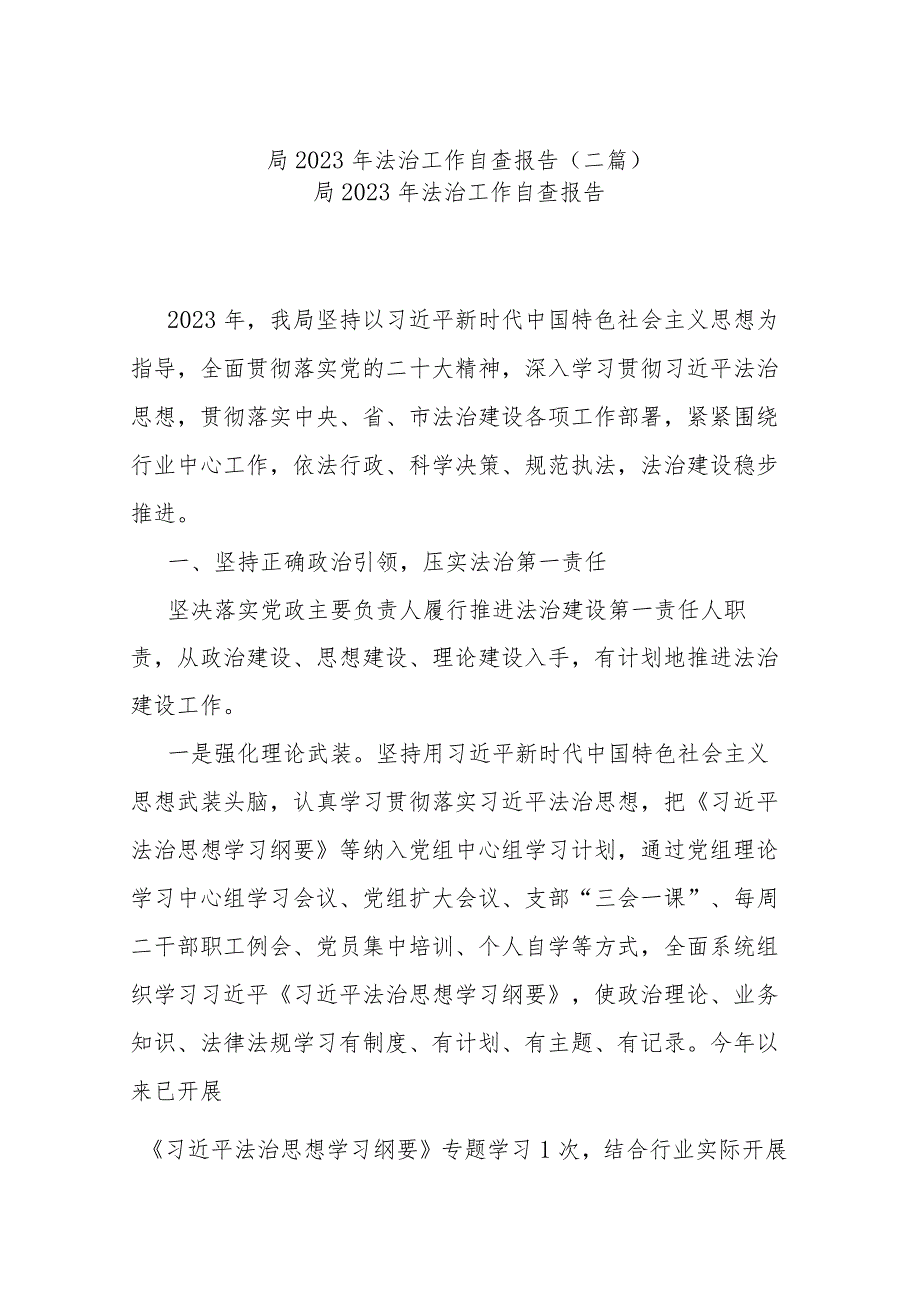 局 2023 年法治工作自查报告（二篇）
局 2023 年法治工作自查报告
2023 年，我局坚持以习近平新时代中国特色社会主义思想为
指导，全面贯彻落实党的二十大精神，深入学习贯彻习近平法治
思想，贯彻落实中央、省、市法治建设各项工作部署，紧紧围绕
行业中心工作，依法行政、科学决策、规范执法，法治建设稳步
推进。
一、坚持正确政治引领，压实法治第一责任
坚决落实党政主要负责人履行推进法治建设第一责任人职
责，从政治建设、思想建设、理论建设入手，有计划地推进法治
建设工作。
一是强化理论武装。坚持用习近平新时代中国特色社会主义
思想武装头脑，认真学习贯彻落实习近平法治思想，把《习近平
法治思想学习纲要》等纳入党组中心组学习计划，通过党组理论
学习中心组学习会议、党组扩大会议、支部“三会一课”、每周
二干部职工例会、党员集中培训、个人自学等方式，全面系统组
织学习习近平《习近平法治思想学习纲要》，使政治理论、业务
知识、法律法规学习有制度、有计划、有主题、有记录。今年以
来已开展
《习近平法治思想学习纲要》专题学习 1 次，结合行业实际开展